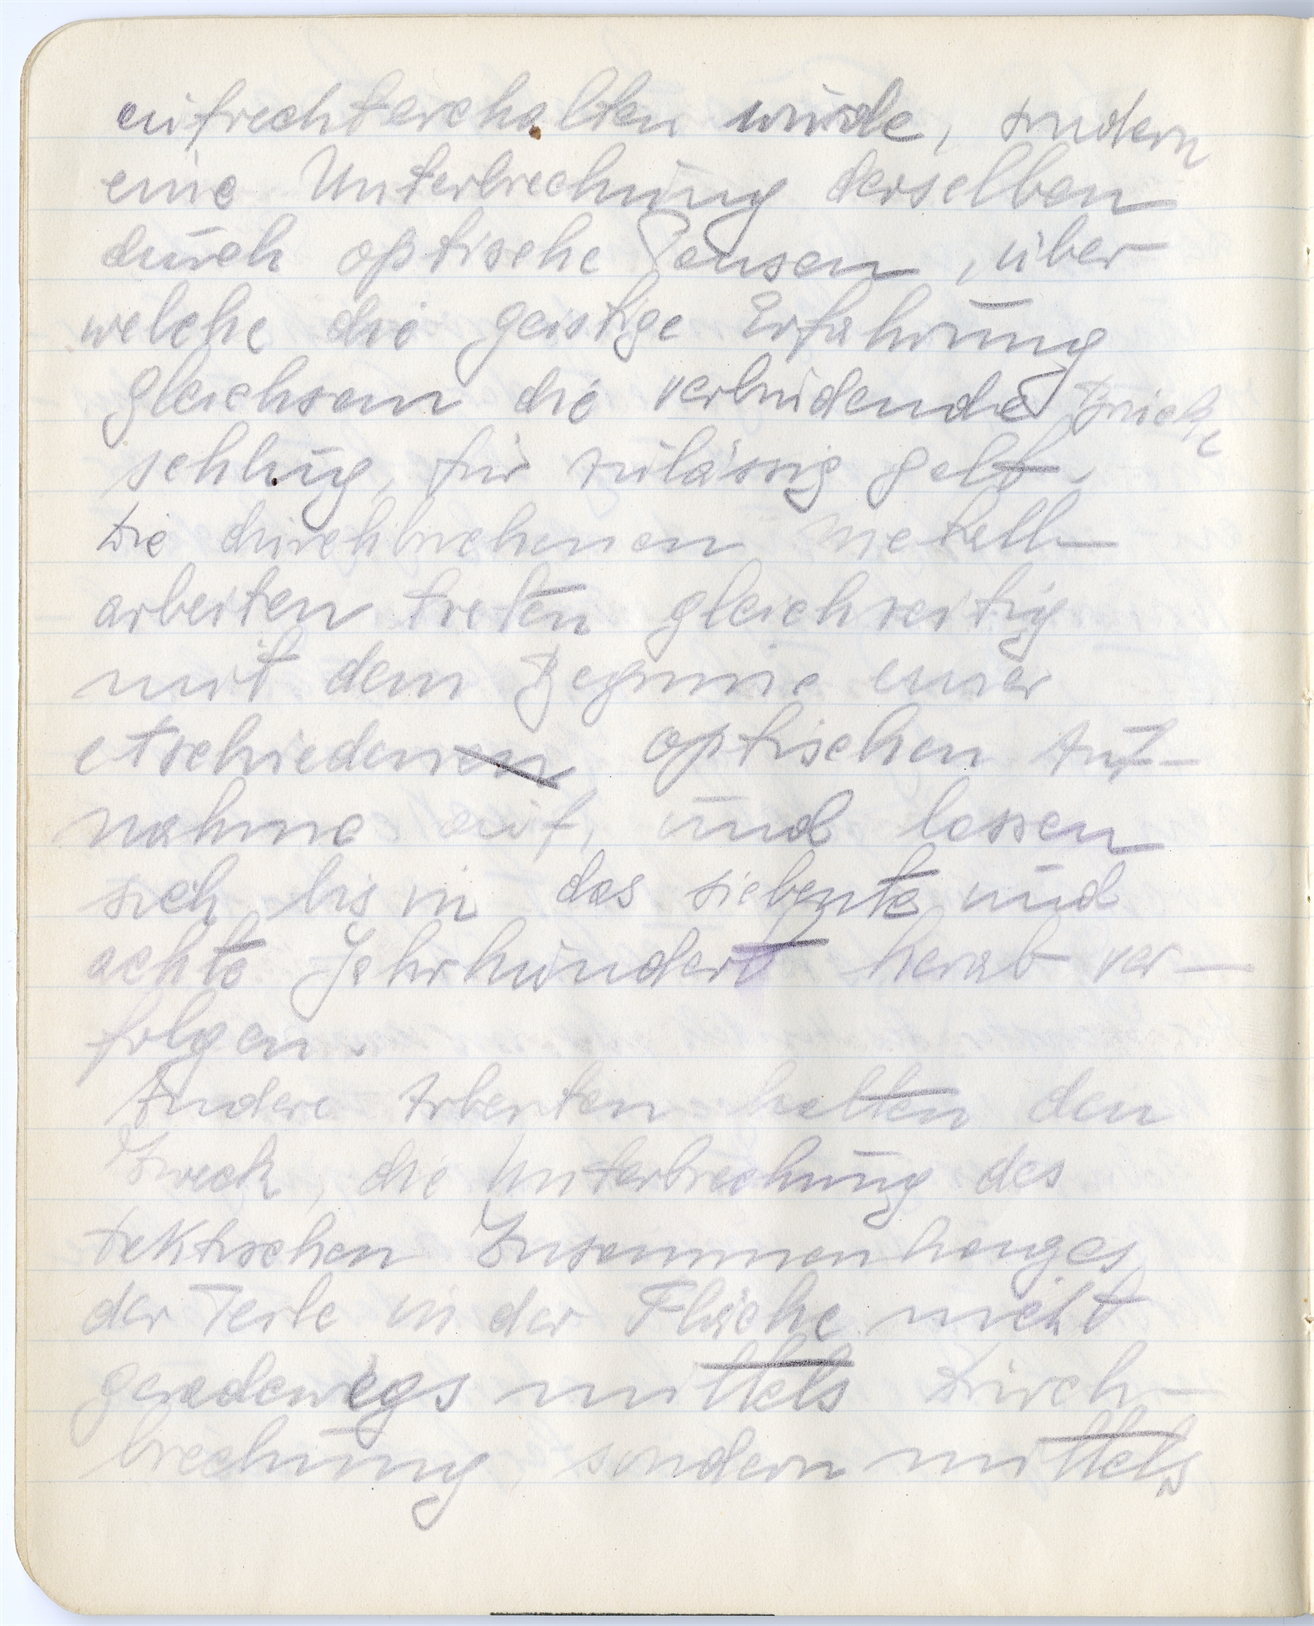 aufrechterhalten wurde, sondern
eine Unterbrechung derselben
durch optische Pausen, über
welche die geistige Erfahrung
gleichsam die verbindende Brücke
schlug, für zulässig galt.
Die durchbrochenen Metall-
arbeiten treten gleichzeitig
mit dem Beginne einer
etschiedenen optischen Auf-
nahme auf, und lassen
sich bis in das siebente und
achte Jahrhundert herab ver-
folgen.
Andere Arbeiten hatten den
Zweck, die Unterbrechung des
taktischen Zusammenhanges
der Teile in der Fläche nicht
geradewegs mittels Durch-
brechung sondern mittels